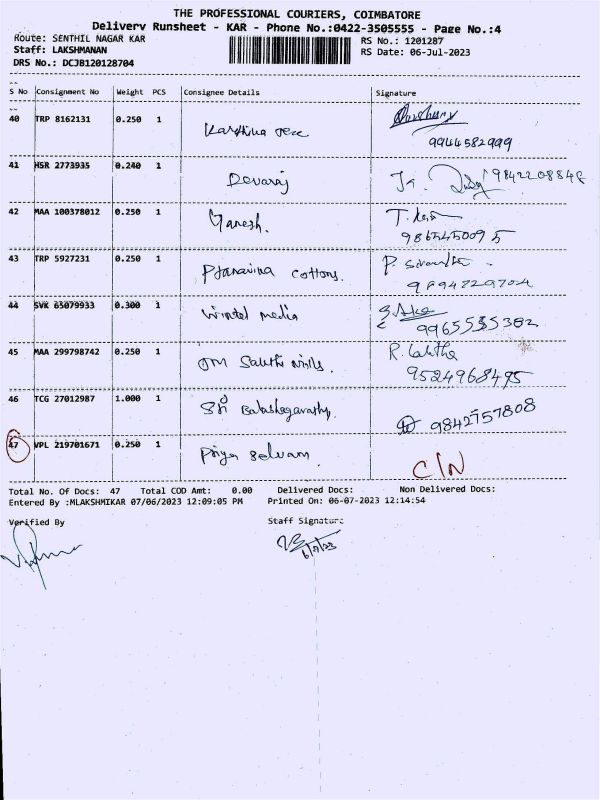 THE PROFESSIONAL COURIERS, COIMBATORE
Delivery Runsheet - KAR - Phone No.:0422-3505555 - Page No.:4
Route: SENTHIL NAGAR KAR
RS No.: 1201287
Staff: LAKSHMANAN
RS Date: 06-Jul-2023
DRS No.: DCJB120128704
S No Consignment No Weight PCS Consignee Details Signature
40 TRP 8162131 0.250 1
9944582999
41 HSR 2773935 0.240 1 Devaraj
42 MAA 100378012 0.250 1 Ganesh.
9865450095
43 TRP 5927231 0.250 1 cottons.
44 SVK 65079933 0.300 1 media
9965535382
45 MAA 299798742 0.250 1 Om Sakthi mills. R. Lalitha
9524968495
46 TCG 27012987 1.000 1 Sri
9842757808
47 VPL 219701671 0.250 1 Priya Selvam. C/N
Total No. Of Docs: 47 Total COD Amt: 0.00 Delivered Docs: Non Delivered Docs:
Entered By :MLAKSHMIKAR 07/06/2023 12:09:05 PM Printed On: 06-07-2023 12:14:54
Verified By Staff Signature
6/7/23